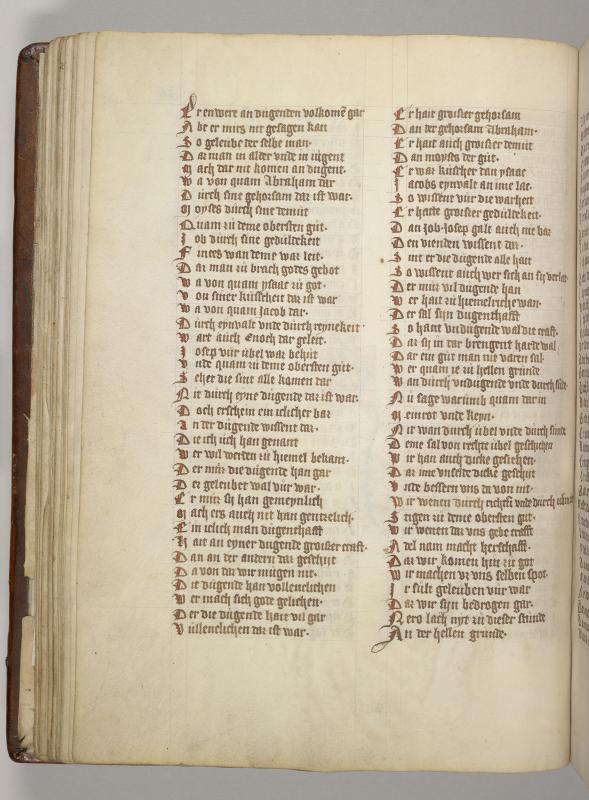 Er enwere an dugenden volkomē gar
A be er mirs nit gesagen kan
S o geleube der selbe man·
D az man in alder vnde in iugent
M ach dar nit komen an dugent·
W a von quam Abraham dar
D urch sine gehorsam daz ist war·
M oyses durch sine demut
Q uam zu deme obersten gut·
J ob durch sine gedultekeit
F intes wan deme waz leit·
D az man zu brach godes gebot
W a von quam ysaac zu got·
V on siner kuscheit daz ist war
W a von quam Jacob dar·
D urch eynvalt vnde durch reynekeit·
W art auch Enoch dar geleit·
J osep vur vbel waz behut
V nde quam zu deme obersten gut·
S ehet die sint alle komen dar
N it durch eyne dugende daz ist war·
D och erschein ein iclicher bar
A n der dugende wissent daz·
D ie ich uch han genant
W er wil werden zu himel bekant·
D er muz die dugende han gar
D ez geleubet wal vur war·
E r muz sy han gemeynlich
M ach ers auch nit han gentzelich·
E in iclich man dugenthafft
H ait an eyner dugende groißer craft·
D an an der andern daz geschiit
D a von daz wir mugen nit·
D ie dugende han vollenclichen
W er mach sich gode gelichen·
D er die dugende hait vil gar
V ollenclichen daz ist war·
E r hait groißer gehorsam
D an der gehorsam Abraham·
E r hait auch groißer demut
D an moyses der gut·
E r waz kuscher dan ysaac
J acobs eynvalt an ime lac·
S o wissent vur die warheit
E r hatte groißer gedultekeit·
D an Job· Josep galt auch nie baz
D en vienden wissent daz·
S int er die dugende alle hait
S o wissent auch wer sich an sy verlat
D er muz vil dugende han
W er hait zu himelriche wan·
D er sal sin dugenthafft
S o hant vndugende wal die craft·
D az sy in dar brengent harde wal
D ar ein gut man nie varen sal·
W er quam ie zu hellen grunde
W an durch vndugende vnde durch sunde
N u sage warumb quam dar in
M emrot vnde keyn·
N it wan durch vbel vnde durch sunde
D eme sal von rechte vbel geschehen
W ir han auch dicke gesehen·
D az ime vnselde dicke geschiit
V nde bessern vns da von nit·
W ir wenen durch richtū vnde durch
S tigen zu deme obersten gut·
W ir wenen daz vns gebe crafft
A del nam macht herschafft·
D az wir komen hin zu got
W ir machen vz vns selben spot·
J r sult geleuben vur war
D az wir syn bedrogen gar·
N ero lach nyt zu dieser stunde
A n der hellen grunde·